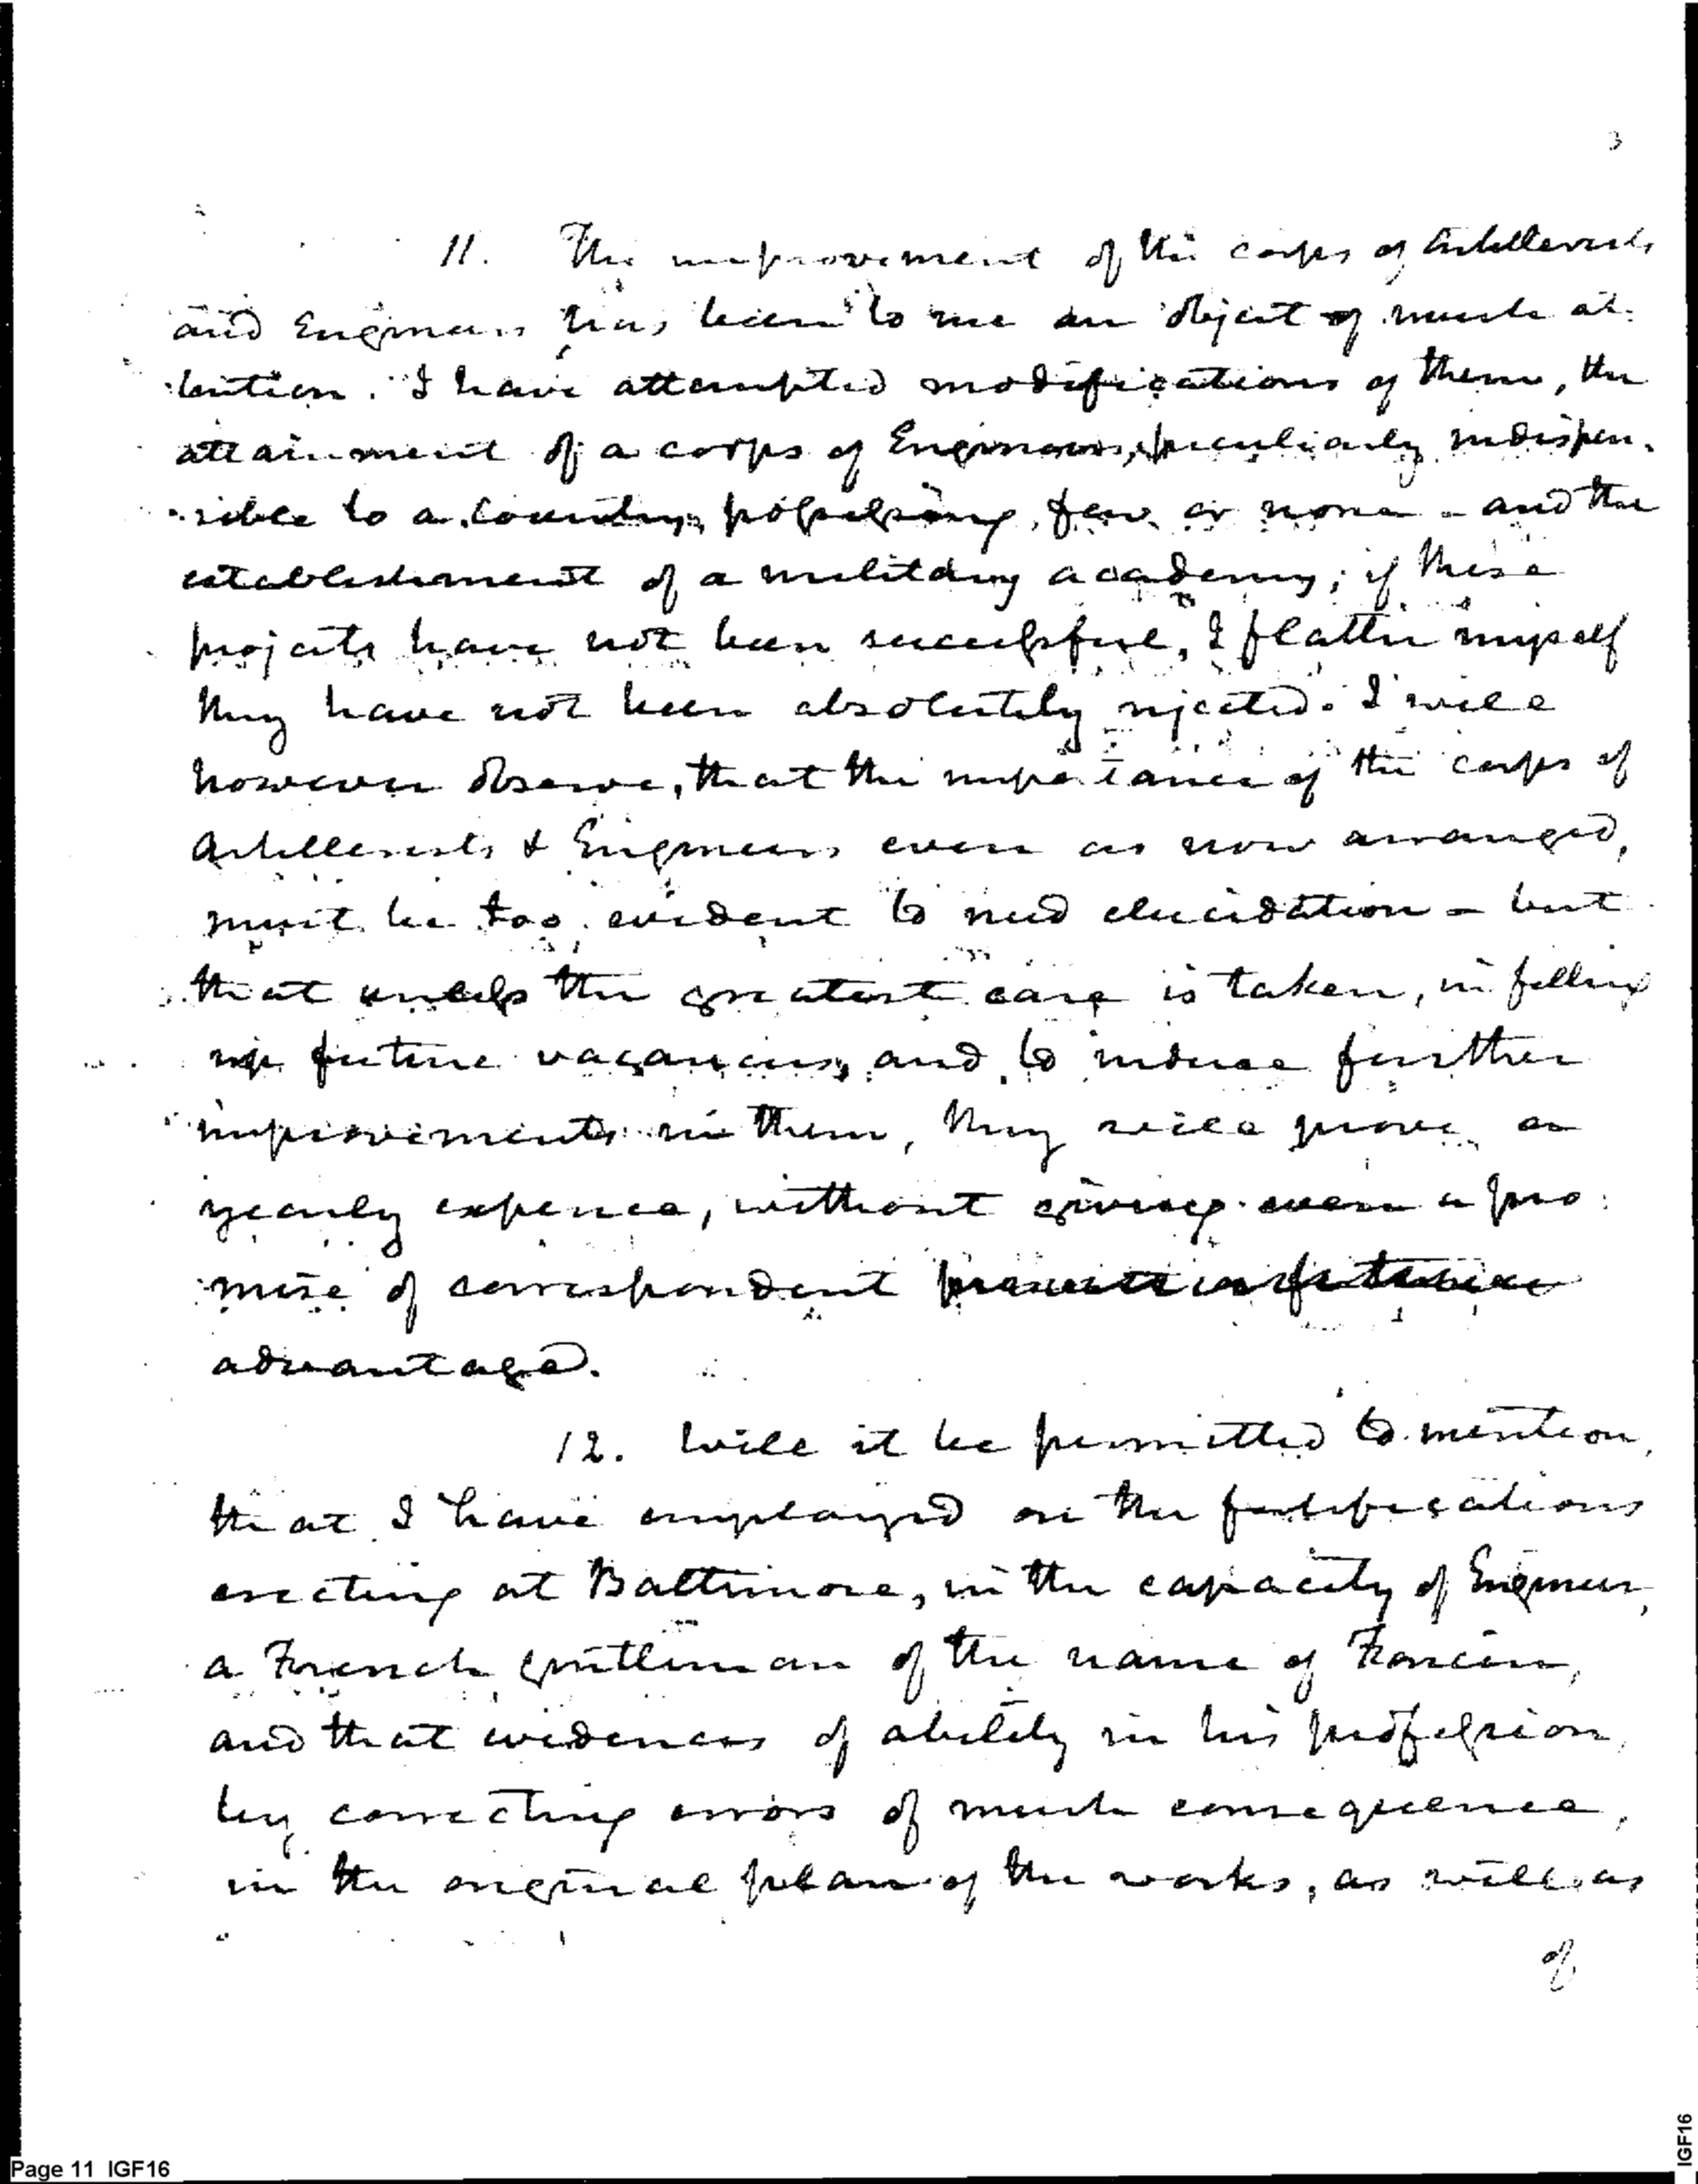 3
11. The improvement of the corps of Artillerists
and Engineers has been to me an object of much at-
tention. I have attempted modifications of them, the
attainment of a corps of Engineers, peculiarly indispen-
-sible to a country, possessing, few or none - and the
establishment of a military academy; if these
projects have not been successful, I flatter myself
they have not been absolutely rejected. I will
however observe, that the importance of the corps of
Artillerists & Engineers even as now arranged,
must be too evident to need elucidation - but
that unless the greatest care is taken, in filling
up future vacancies, and to induce further
improvements in them, they will prove a
yearly expence, without giving even a pro-
mise of correspondent
advantage.
12. Will it be permitted to mention,
that I have employed on the fortifications
erecting at Baltimore, in the capacity of Engineer,
a French gentleman of the name of Foncin,
and that evidences of ability in his profession,
by correcting errors of much consequence,
in the original plan of the works, as well as
of
Page 11 IGF16
IGF16